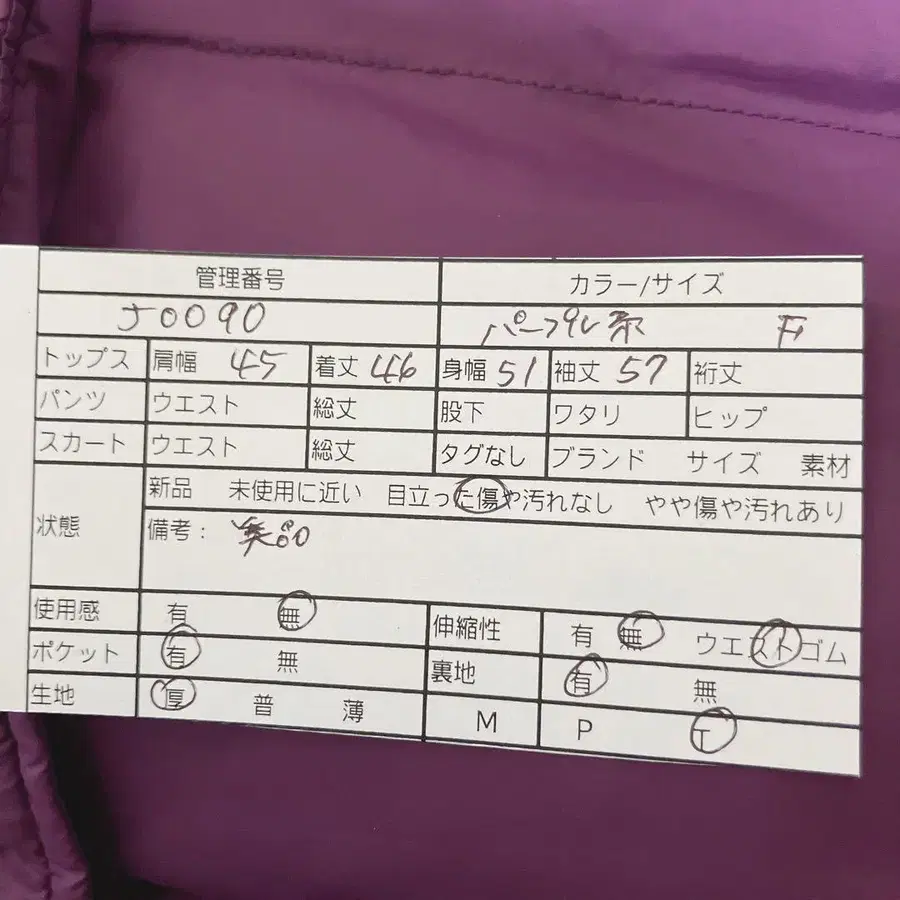 管理番号 カラー/サイズ
J0090 パープル系 F
トップス 肩幅 45 着丈 46 身幅 51 袖丈 57 裄丈
パンツ ウエスト 総丈 股下 ワタリ ヒップ
スカート ウエスト 総丈 タグなし ブランド サイズ 素材
状態 新品 未使用に近い 目立った傷や汚れなし やや傷や汚れあり
備考: 美品
使用感 有 無 伸縮性 有 無 ウエストゴム
ポケット 有 無 裏地 有 無
生地 厚 普 薄 M P T